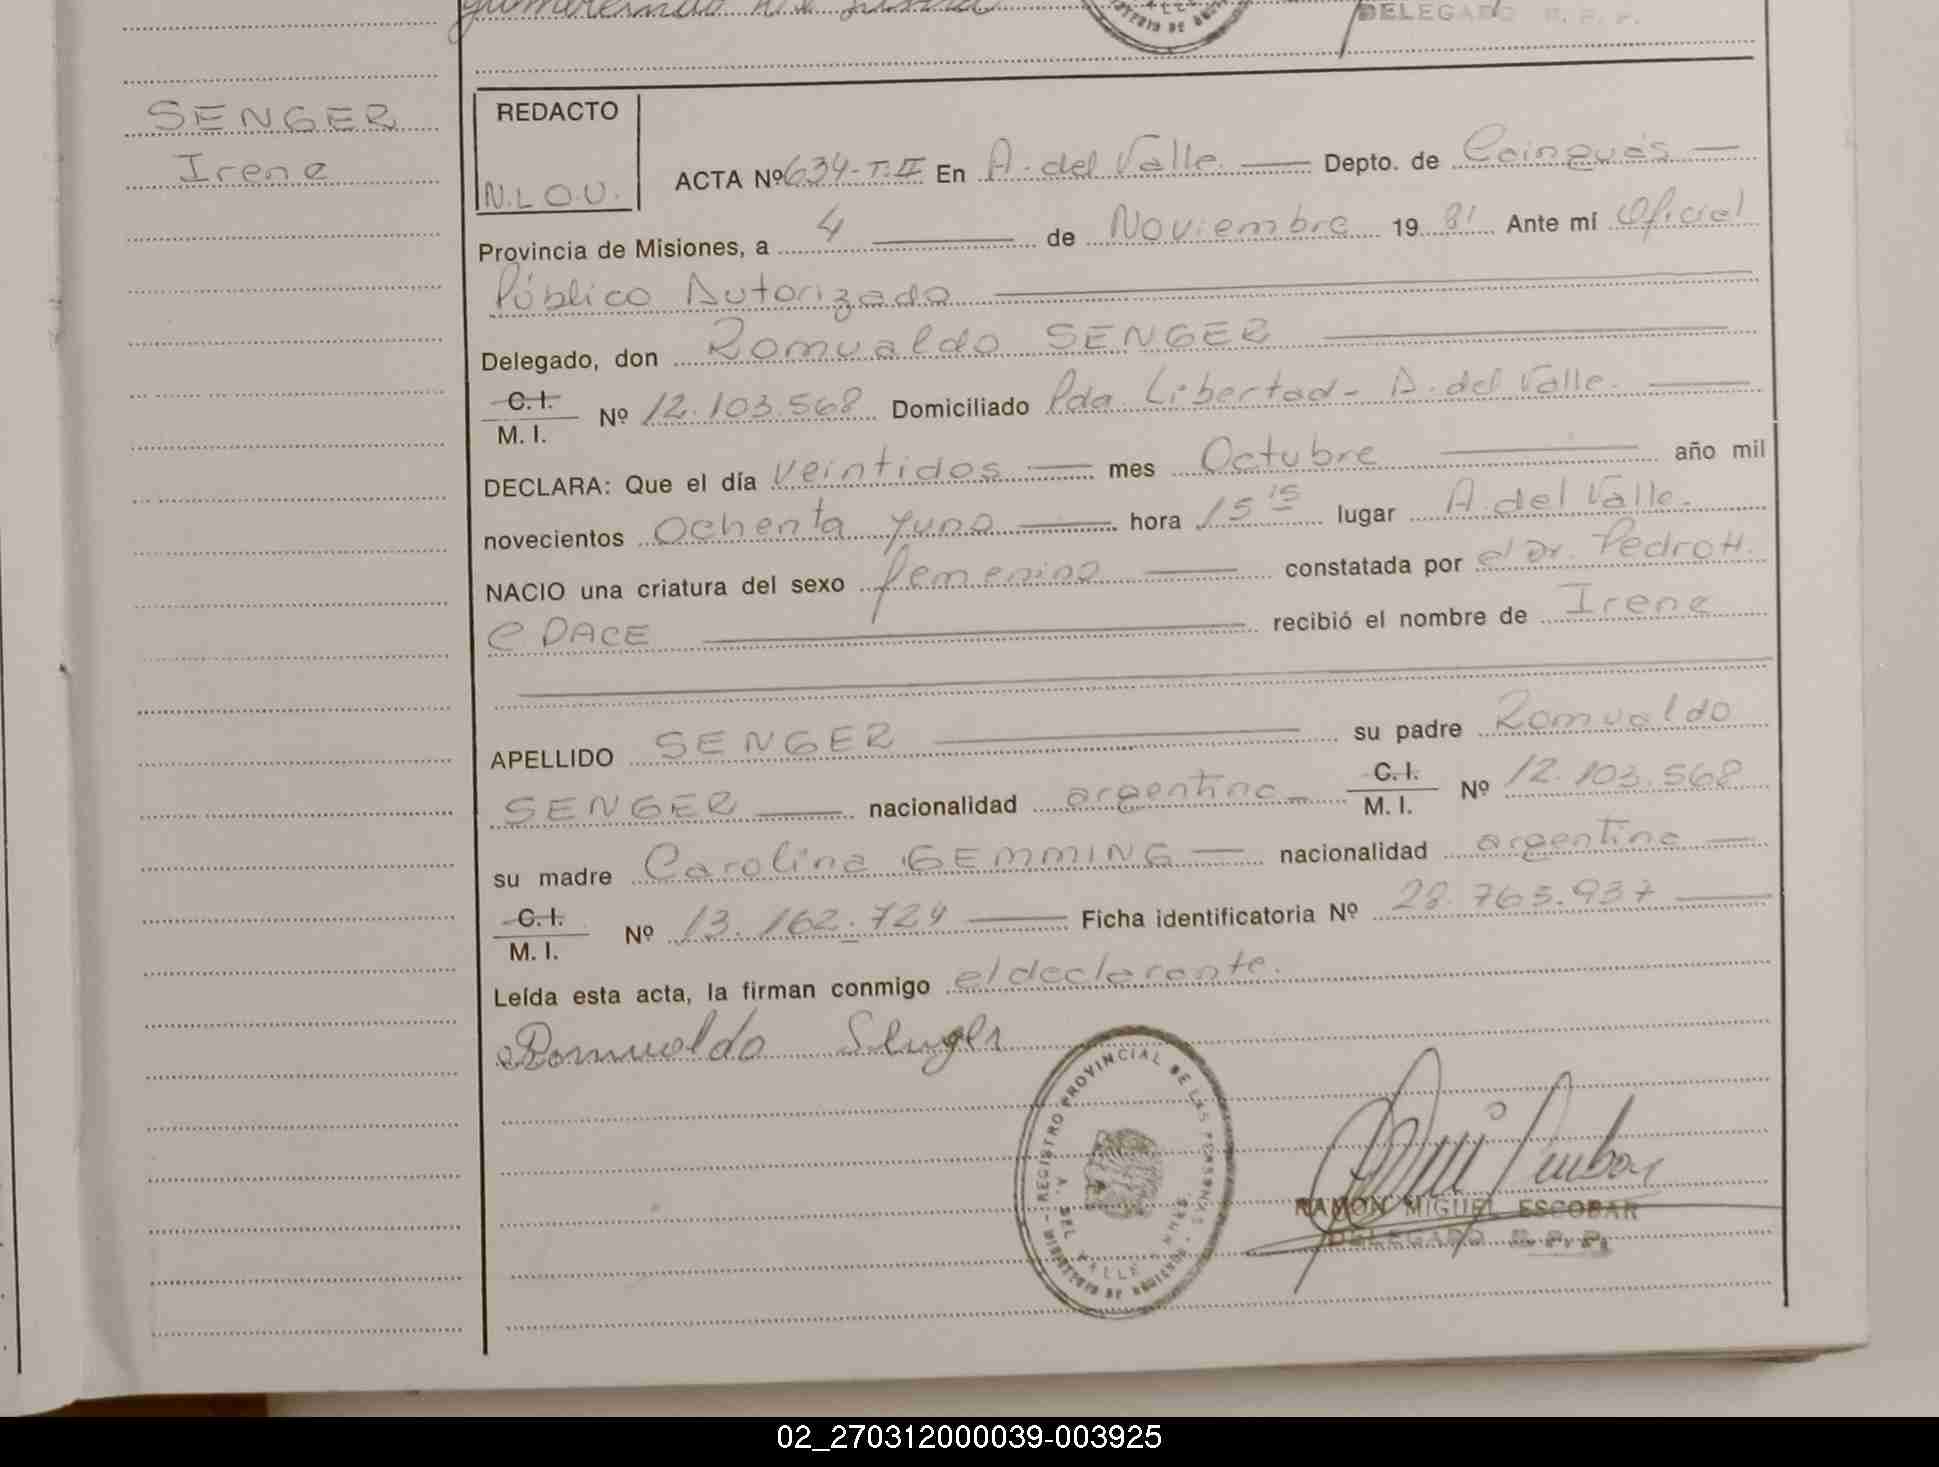 DELEGADO R. P. P.
SENGER
Irene
REDACTO
N.L.O.U.
ACTA Nº 634-T.II En A. del Valle. Depto. de Cainguás
Provincia de Misiones, a 4 de Noviembre 19 81 Ante mí Oficial
Público Autorizado
Delegado, don Romualdo SENGER
C. I.
M. I. Nº 12.103.568 Domiciliado Pda. Libertad - A. del Valle.
DECLARA: Que el día veintidos mes Octubre año mil
novecientos ochenta yuno hora 15 15 lugar A. del Valle.
NACIO una criatura del sexo femenino constatada por el Dr. Pedro H.
DACE recibió el nombre de Irene
APELLIDO SENGER su padre Romualdo
SENGER nacionalidad argentina C. I.
M. I. Nº 12.103.568
su madre Carolina GEMMING nacionalidad argentina
C. I.
M. I. Nº 13.162.724 Ficha identificatoria Nº 28.763.937
Leída esta acta, la firman conmigo el declarante.
Romualdo Senger
REGISTRO PROVINCIAL DE LAS PERSONAS
A. DEL VALLE
RAMON MIGUEL ESCOBAR
DELEGADO R. P. P.
02_270312000039-003925